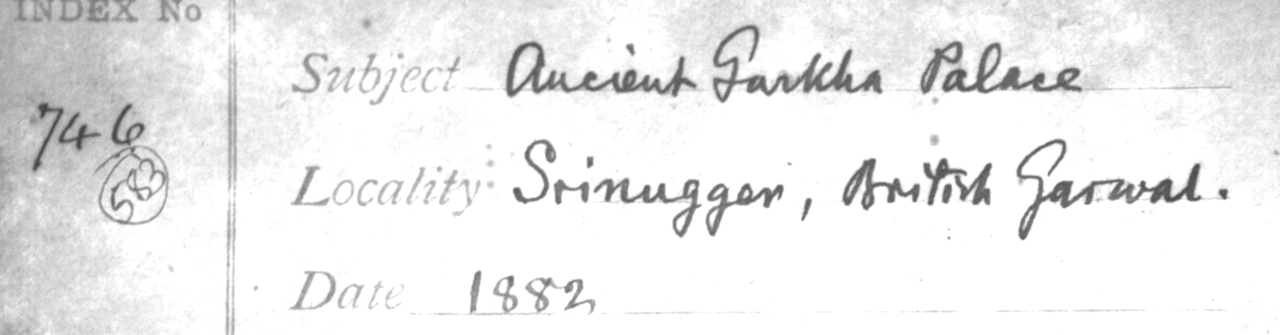 INDEX No
Subject Ancient Garkha Palace
746
583
Locality Srinugger, British Garwal.
Date 1882